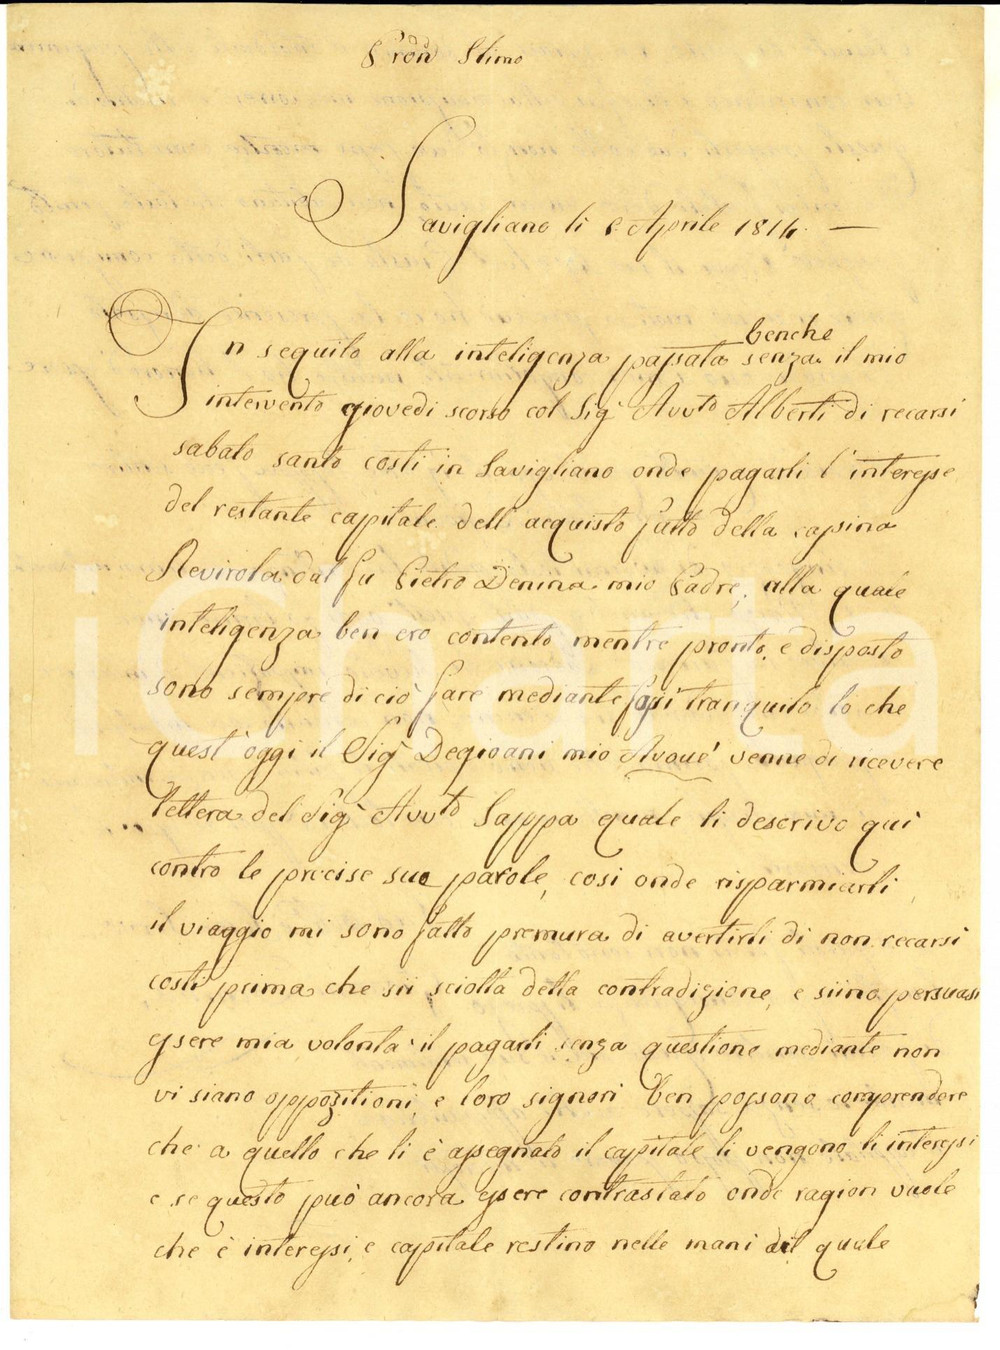 Pron Stimo
Savigliano li 6 Aprile 1814. —
benche
In seguito alla inteligenza passata senza il mio
intervento giovedi scorso col Sigr Avvto Alberti di recarsi
sabato santo costi in Savigliano onde pagarli l'interesse
del restante capitale dell'acquisto fatto della cassina
Revirola dal fu Pietro Denina mio Padre, alla quale
inteligenza ben ero contento mentre pronto, e disposto
sono sempre di ciò fare mediante tranquilo lo che
quest'oggi il Sigr Degioani mio Avoué venne di ricevere
lettera del Sigr Avvto Sappa quale li descrivo qui
contro le precise sue parole, cosi onde risparmiarli
il viaggio mi sono fatto premura di avertirli di non recarsi
costi prima che sii sciolta della contradizione, e siino persuasi
essere mia volontà il pagarli senza questione mediante non
vi siano oppozitioni, e loro signori ben possono comprendere
che a quello che li è assegnato il capitale li vengono li interessi
e se questo può ancora essere contrastato onde ragion vuole
che è interessi, e capitale restino nelle mani del quale
iCharta